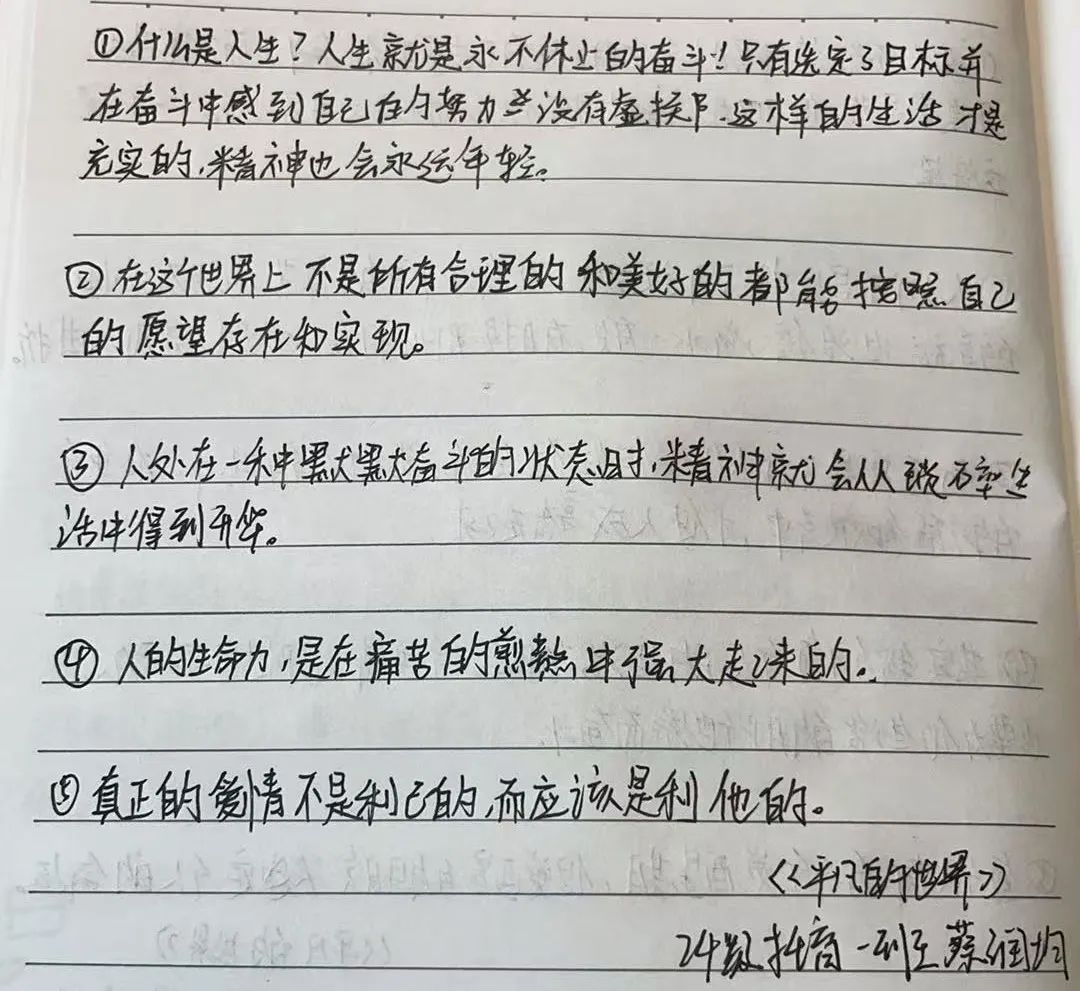 ①什么是人生？人生就是永不休止的奋斗！只有选定了目标并
在奋斗中感到自己的努力并没有虚掷，这样的生活才是
充实的，精神也会永远年轻。
②在这个世界上不是所有合理的和美好的都能按照自己
的愿望存在和实现。
③人处在一种默默奋斗的状态时，精神就会从琐碎生
活中得到升华。
④人的生命力，是在痛苦的煎熬中强大起来的。
⑤真正的爱情不是利己的，而应该是利他的。
《平凡的世界》
24级 一班 蔡润均